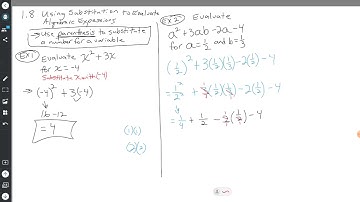 1.8 Using Substitution to Evaluate
Algebraic Expressions
→ Use parenthesis to substitute
a number for a variable
EX1 Evaluate x² + 3x
for x = -4
Substitute x with (-4)
→ (-4)² + 3(-4)
16 - 12
= 4
EX2 Evaluate
a² + 3ab - 2a - 4
for a = 1/2 and b = 1/3
(1/2)² + 3(1/2)(1/3) - 2(1/2) - 4
= 1²/2² + 3(1/2)(1/3) - 2(1/2) - 4
= 1/4 + 1/2 - 2(1/2) - 4